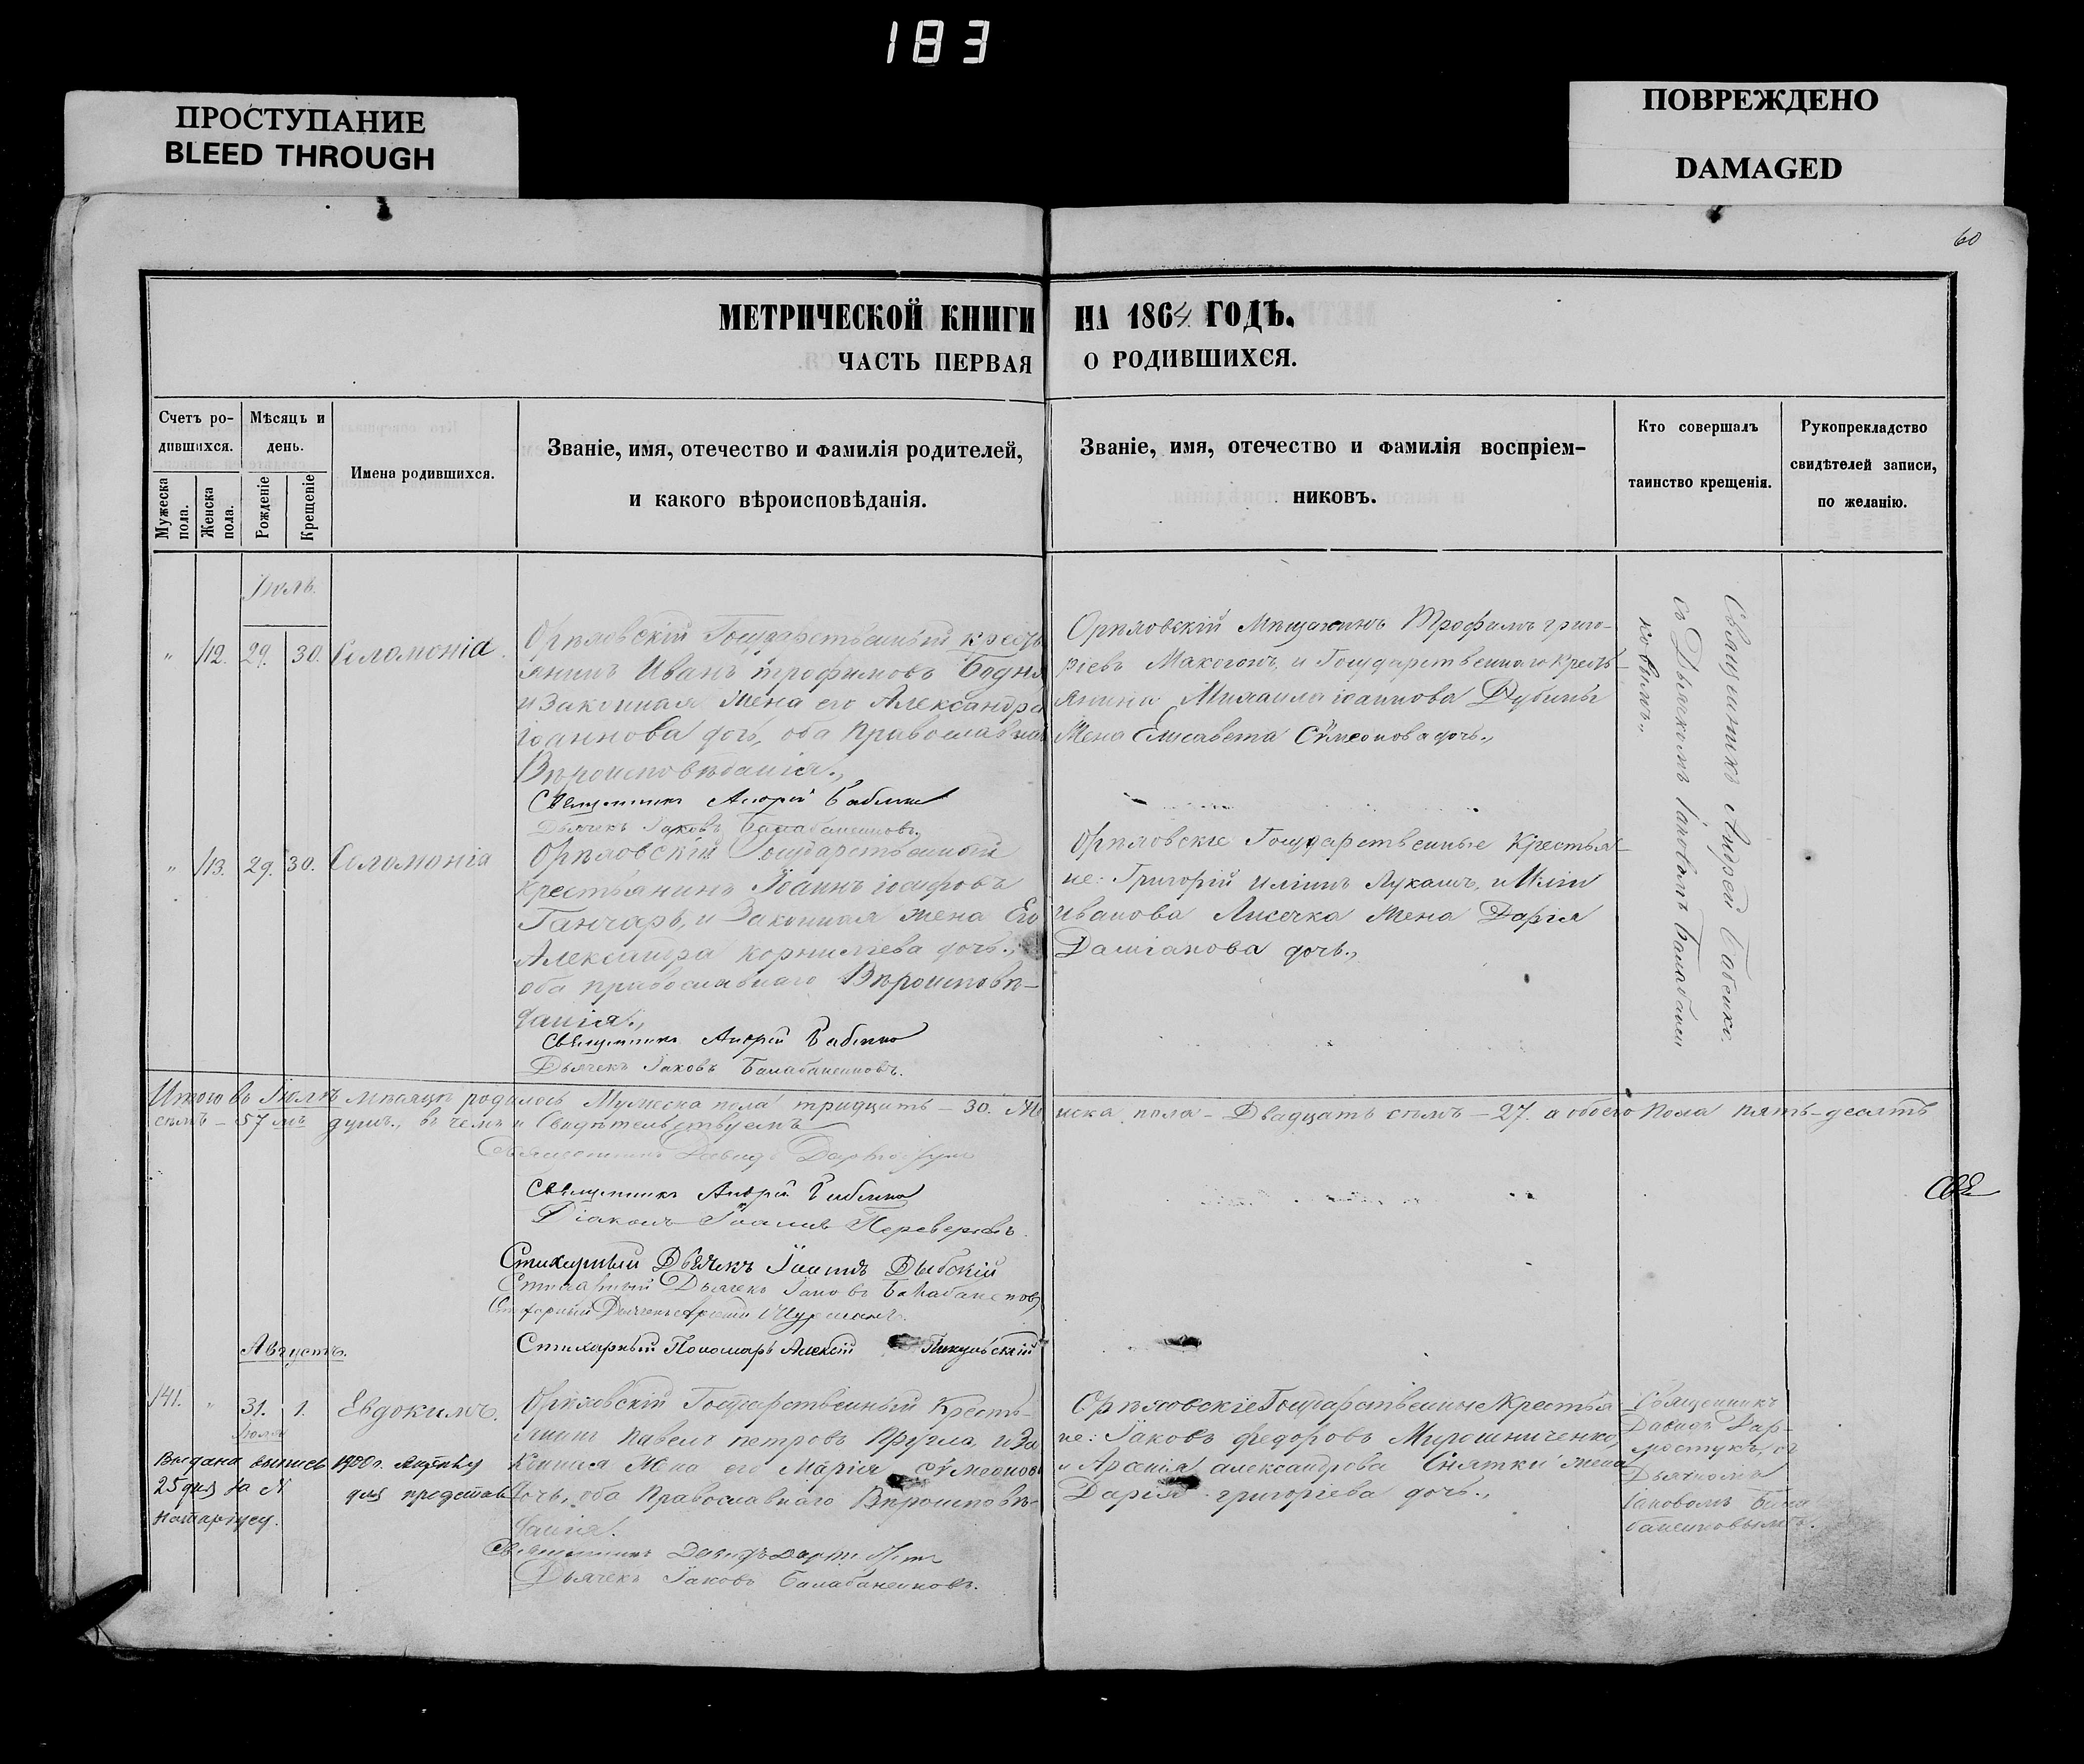 183
ПРОСТУПАНИЕ
BLEED THROUGH
ПОВРЕЖДЕНО
DAMAGED
60
МЕТРИЧЕСКОЙ КНИГИ НА 1864 ГОДЪ.
ЧАСТЬ ПЕРВАЯ О РОДИВШИХСЯ.
Счетъ ро-
дившихся.
Мужеска пола.
Женска пола.
Мѣсяцъ и
день.
Рожденіе
Крещеніе
Имена родившихся.
Званіе, имя, отечество и фамилія родителей,
и какого вѣроисповѣданія.
Званіе, имя, отечество и фамилія воспріем-
никовъ.
Кто совершалъ
таинство крещенія.
Рукоприкладство
свидѣтелей записи,
по желанію.
Іюль.
" 112. 29. 30. Соломонія
Орѣховскій Государственный кресть
янинъ Иванъ трофимовъ Бодня
и Законная Жена его Александра
іоаннова дочь, оба Православнаго
Вѣроисповѣданія.,
Священникъ Андрей Бабенко
Дьячекъ Іаковъ Балабаненковъ.
Орѣховскій Мѣщанинъ Трофимъ григо-
ріевъ Махогонъ, и Государственнаго Кресть-
янина Михаила іоаннова Дубины
Жена Елисавета Сѵмеонова дочь.,
Священникъ Андрей Бабенко
съ Дьячкомъ Іаковомъ Балабанен
ковымъ.,
" 113. 29. 30. Соломонія
Орѣховскій Государственный
крестьянинъ Іоаннъ іосифовъ
Ганчаръ, и Законная жена Его
Александра корниліева дочь.,
оба православнаго Вѣроисповѣ-
данія.,
Священникъ Андрей Бабенко
Дьячекъ Іаковъ Балабаненковъ.
Орѣховскіе Государственные Крестья-
не: Григорій иліинъ Лукашъ, и Иліи
иванова Лисечка Жена Дарія
Даміанова дочь.,
Итого въ Іюлѣ мѣсяцѣ родилось Мужеска пола тридцать – 30. Же нска пола – Двадцать семь – 27. а обоего Пола пять-десятъ
семь – 57 мъ душъ., въ чемъ и Свидѣтельствуемъ
Священникъ Давидъ
Священникъ Андрей Бабенко
Діаконъ Іоаннъ
Стихарный Дьячекъ Іоаннъ Дыбскій
Стихарный Дьячекъ Іаковъ Балабаненковъ
Стихарный Дьячекъ
Стихарный Пономарь Алексій Пикульскій
Августъ.
141. " 31. 1. Евдокимъ.
Іюля
Выдана выпись 1900 г.
25 дня за №
для представ
нотаріусу.
Орѣховскій Государственный Кресть-
янинъ Павелъ петровъ Кругла, и За
конная Жена его Марія сѵмеонова
дочь, оба Православнаго Вѣроисповѣ-
данія.
Священникъ Давидъ
Дьячекъ Іаковъ Балабаненковъ.
Орѣховскіе Государственные Крестья
не: Іаковъ федоровъ Мирошниченко,
и Арсенія александрова Снятки жена
Дарія григоріева дочь.,
Священникъ
Давидъ Дар-
мостукъ, съ
Дьячкомъ
Іаковомъ Бала
баненковымъ.